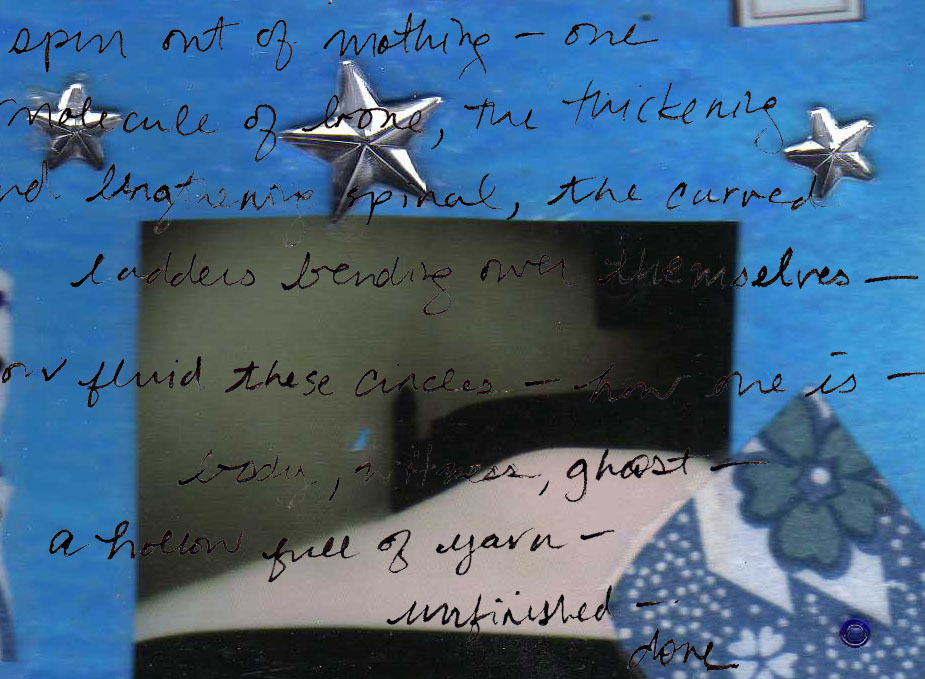 spun out of nothing – one
molecule of bone, the thickening
nd lengthening spinal, the curved
ladders bending over themselves –
ow fluid these circles – how one is –
body, witness, ghost –
a hollow full of yarn –
unfinished –
done